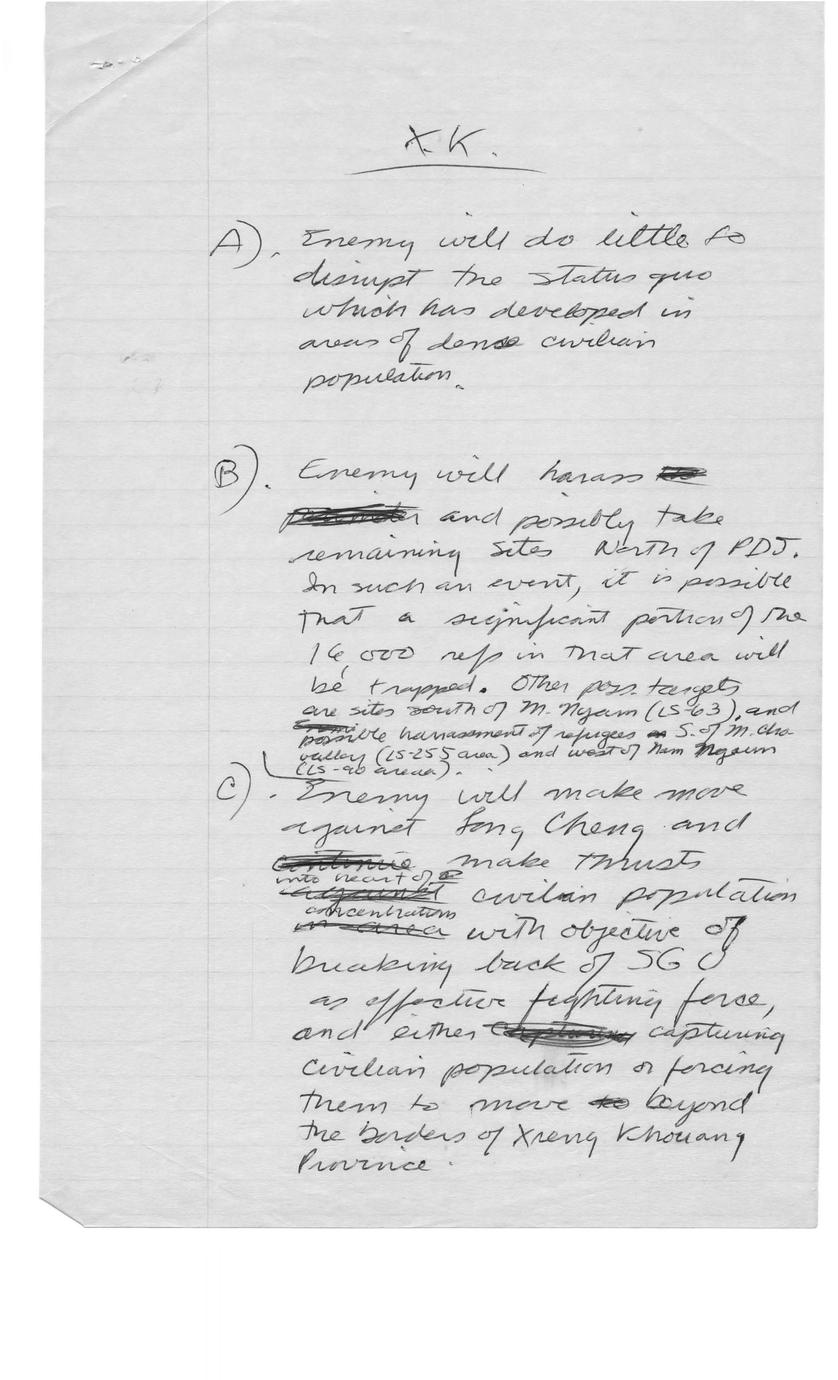 X.K.
A). Enemy will do little to
disrupt the status quo
which has developed in
areas of dense civilian
population.
B). Enemy will harass
and possibly take
remaining sites North of PDJ.
In such an event, it is possible
that a significant portion of the
16,000 refs in that area will
be trapped. Other poss. targets
are sites south of M. Ngam (LS-63), and
possible harrasement of refugees S. of M. Cha
valley (LS-255 area) and west of Nam Ngaum
(LS-90 areaa).
C). Enemy will make move
against Long Cheng and
continue make thrusts
into heart of
against civilian population
concentration
in area with objective of
breaking back of SGU
as effective fighting force,
and either capturing
civilian population or forcing
them to move to beyond
the borders of Xieng Khouang
Province.